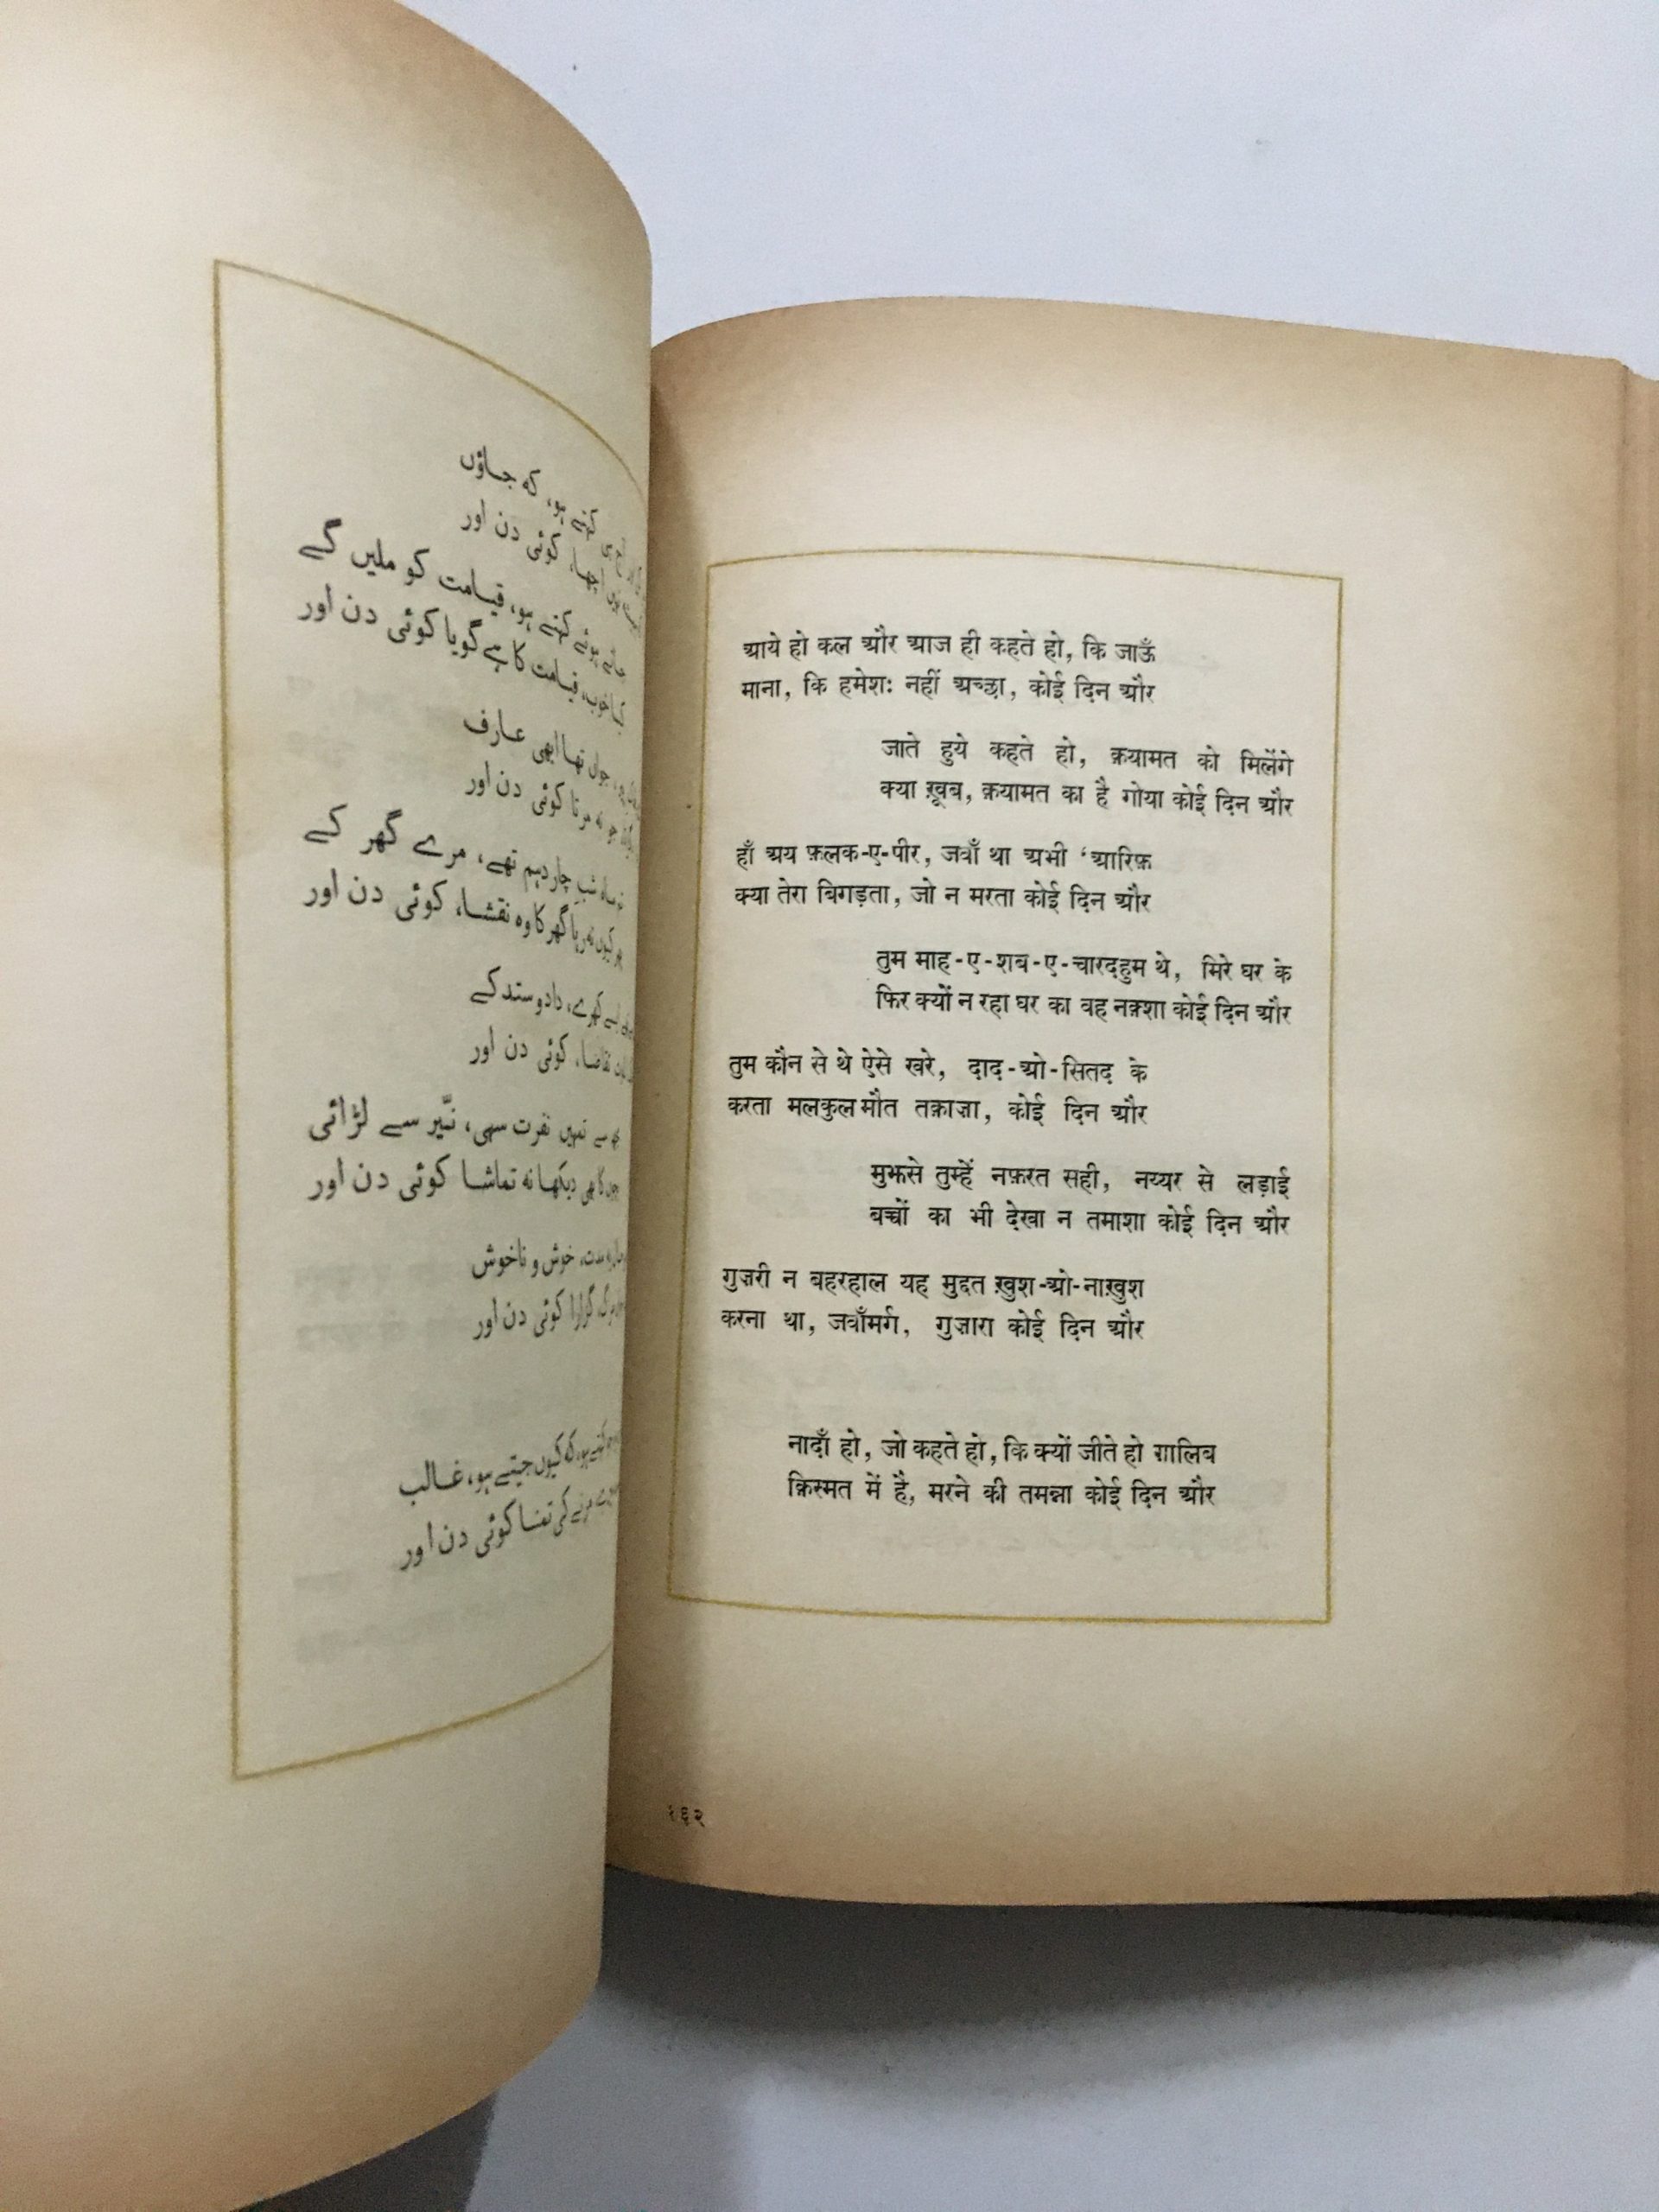 کہتے ہو، کہ جاؤں
اچھا، کوئی دن اور
جاتے ہوئے کہتے ہو، قیامت کو ملیں گے
کیا خوب، قیامت کا ہے گویا کوئی دن اور
جواں تھا ابھی عارف
جو نہ مرتا کوئی دن اور
ماہ شبِ چاردہم تھے، مرے گھر کے
پھر کیوں نہ رہا گھر کا وہ نقشا، کوئی دن اور
کھرے، دادوستد کے
تقاضا، کوئی دن اور
مجھ سے تمہیں نفرت سہی، نیّر سے لڑائی
کا بھی دیکھا نہ تماشا کوئی دن اور
مدت، خوش و ناخوش
گزارا کوئی دن اور
کہتے ہو، کہ کیوں جیتے ہو، غالب
مرنے کی تمنا کوئی دن اور
आये हो कल और आज ही कहते हो, कि जाऊँ
माना, कि हमेशः नहीं अच्छा, कोई दिन और
जाते हुये कहते हो, क़यामत को मिलेंगे
क्या ख़ूब, क़यामत का है गोया कोई दिन और
हाँ अय फ़लक-ए-पीर, जवाँ था अभी ‘आरिफ़
क्या तेरा बिगड़ता, जो न मरता कोई दिन और
तुम माह-ए-शब-ए-चारदहुम थे, मिरे घर के
फिर क्यों न रहा घर का वह नक़्शा कोई दिन और
तुम कौन से थे ऐसे खरे, दाद-ओ-सितद के
करता मलकुलमौत तक़ाज़ा, कोई दिन और
मुझसे तुम्हें नफ़रत सही, नय्यर से लड़ाई
बच्चों का भी देखा न तमाशा कोई दिन और
गुज़री न बहरहाल यह मुद्दत ख़ुश-ओ-नाख़ुश
करना था, जवाँमर्ग, गुज़ारा कोई दिन और
नादाँ हो, जो कहते हो, कि क्यों जीते हो ग़ालिब
क़िस्मत में है, मरने की तमन्ना कोई दिन और
१६२